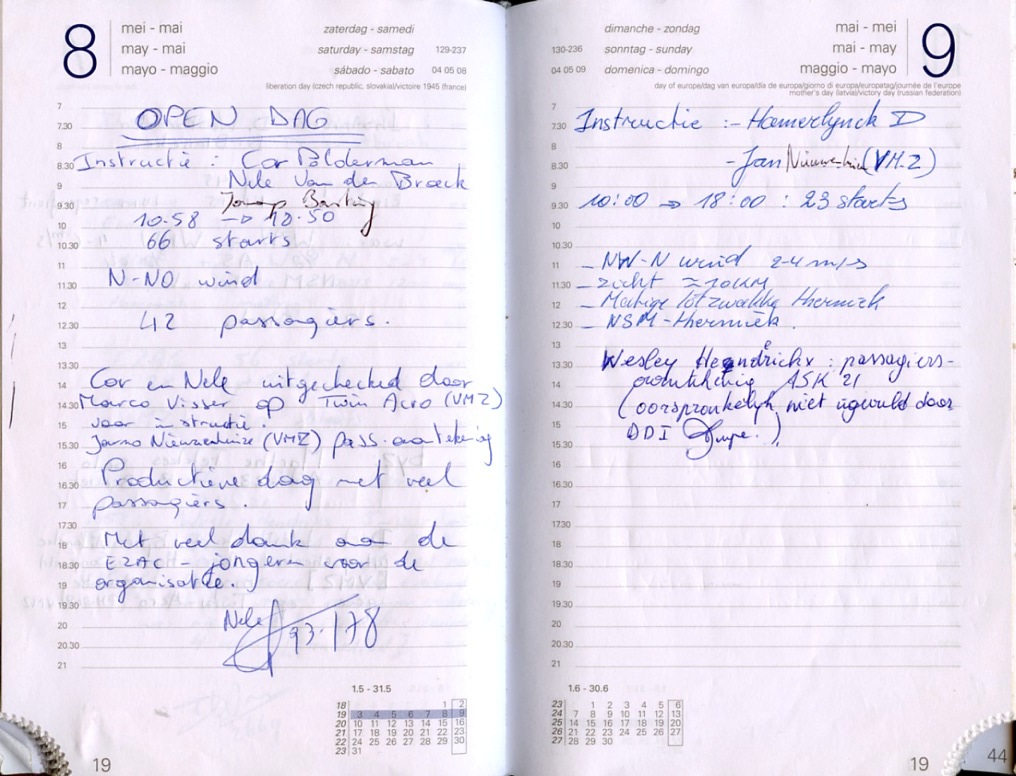 8
mei - mai
may - mai
mayo - maggio
zaterdag - samedi
saturday - samstag 129-237
sábado - sabato 04 05 08
liberation day (czech republic, slovakia)/victoire 1945 (france)
OPEN DAG
Instructie : Cor Blderman
Nele Van den Broeck
Barting
10.58 → 18.50
66 starts
N-NO wind
42 passagiers.
Cor en Nele uitgechecked door
Marco Visser op Twin Acro (VMZ)
voor instructie.
Jarno Nieuwenhuize (VMZ) pass. aantekening
Productieve dag met veel
passagiers.
Met veel dank aan de
EZAC - jongeren voor de
organisatie.
Nele
93.178
7
7.30
8
8.30
9
9.30
10
10.30
11
11.30
12
12.30
13
13.30
14
14.30
15
15.30
16
16.30
17
17.30
18
18.30
19
19.30
20
20.30
21
1.5 - 31.5
18 1 2
19 3 4 5 6 7 8 9
20 10 11 12 13 14 15 16
21 17 18 19 20 21 22 23
22 24 25 26 27 28 29 30
23 31
19
9
mei - mai
mai - may
maggio - mayo
dimanche - zondag
130-236 sonntag - sunday
04 05 09 domenica - domingo
day of europe/dag van europa/dia de europa/giorno di europa/europatag/journée de l'europe
mother's day (latvia)/victory day (russian federation)
Instructie :- Hamerlynck D
- Jan (VH.Z)
10:00 → 18:00 : 23 starts
- NW-N wind 2-4 m/s
- zicht ≈ 10KM
- Matige tot zwakke thermiek
- NSM-thermiek.
Wesley Hendrickx : passagiers-
aantekening ASK 21
(oorspronkelijk niet ingevuld door
DDI )
7
7.30
8
8.30
9
9.30
10
10.30
11
11.30
12
12.30
13
13.30
14
14.30
15
15.30
16
16.30
17
17.30
18
18.30
19
19.30
20
20.30
21
1.6 - 30.6
23 1 2 3 4 5 6
24 7 8 9 10 11 12 13
25 14 15 16 17 18 19 20
26 21 22 23 24 25 26 27
27 28 29 30
19
44